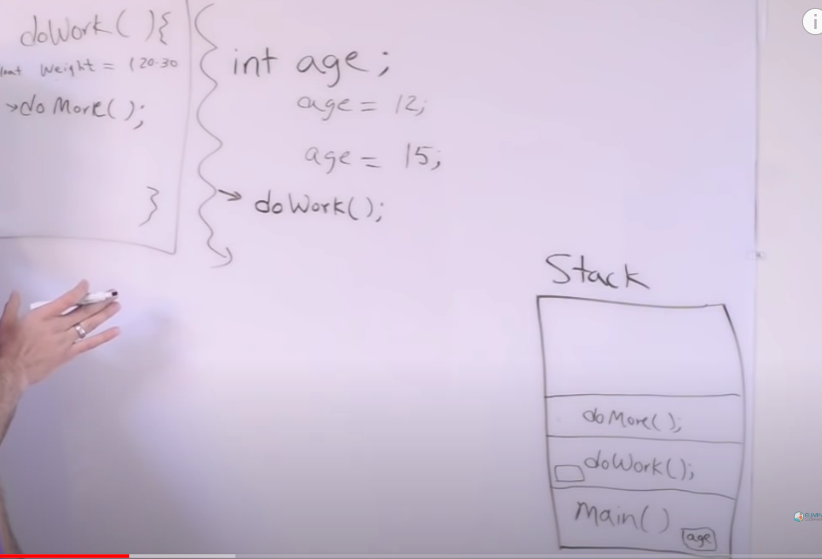 doWork( ){
Weight = 120.30
doMore( );
}
int age;
age = 12;
age = 15;
doWork( );
Stack
doMore( );
doWork( );
Main( )
age